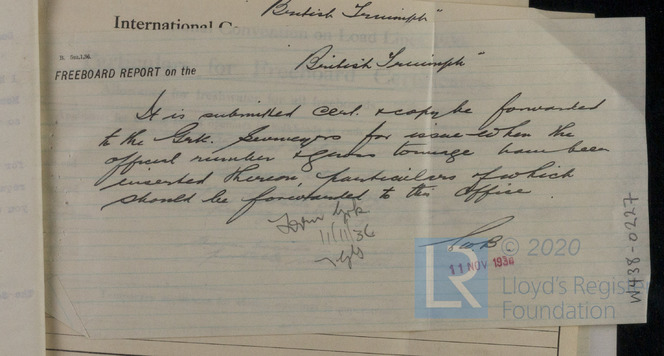 British Triumph"
International
International Convention on Load Lin
D. Sec,1,36.
FREEBOARD REPORT on the
British Triumph"
It is submitted cert. & copy be forwarded
to the Grk. Surveyors for issue when the
official number & gross tonnage have been
inserted thereon, particulars of which
should be forwarded to this Office.
11/11/36
11 NOV 1936
W438-0227
LR
© 2020
Lloyd's Regist
Foundation